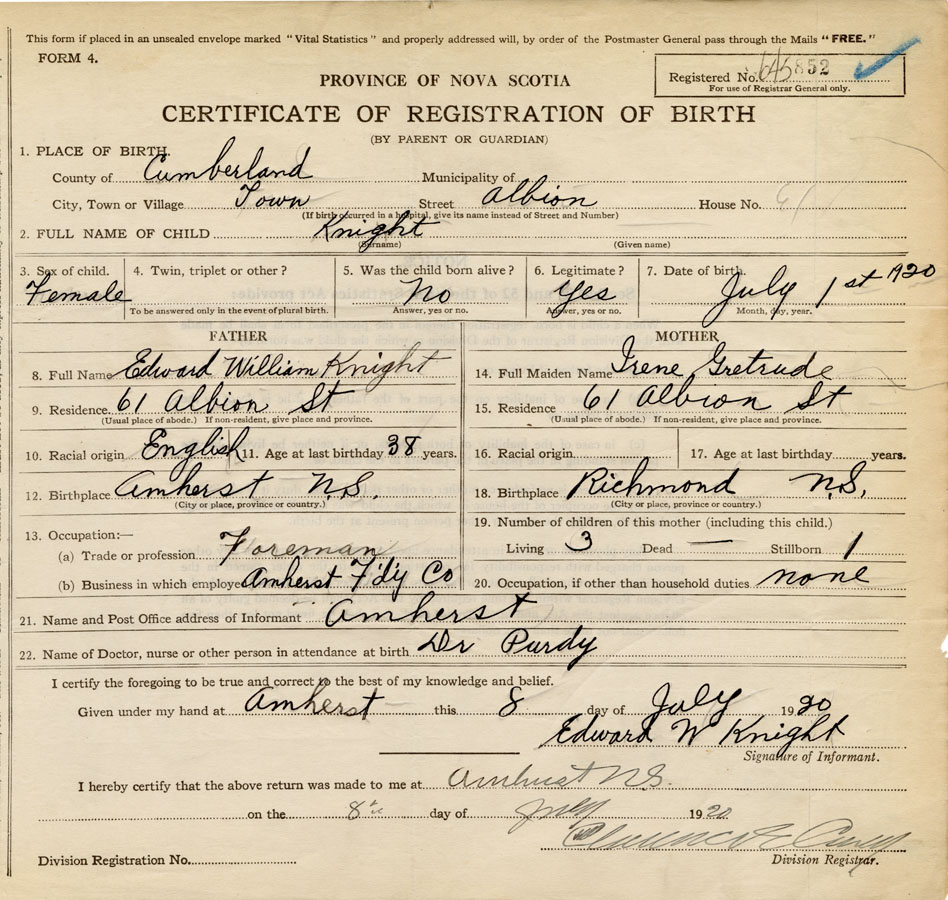 This form if placed in an unsealed envelope marked "Vital Statistics" and properly addressed will, by order of the Postmaster General pass through the Mails "FREE."
FORM 4.
Registered No. 645852
For use of Registrar General only.
PROVINCE OF NOVA SCOTIA
CERTIFICATE OF REGISTRATION OF BIRTH
(BY PARENT OR GUARDIAN)
1. PLACE OF BIRTH.
County of Cumberland Municipality of
City, Town or Village Town Street Albion House No.
(If birth occurred in a hospital, give its name instead of Street and Number)
2. FULL NAME OF CHILD Knight
(Surname) (Given name)
3. Sex of child. 4. Twin, triplet or other? 5. Was the child born alive? 6. Legitimate? 7. Date of birth.
Female No Yes July 1st 1920
To be answered only in the event of plural birth. Answer, yes or no. Answer, yes or no. Month, day, year.
FATHER MOTHER
8. Full Name Edward William Knight 14. Full Maiden Name Irene Gretrude
9. Residence. 61 Albion St 15. Residence 61 Albion St
(Usual place of abode.) If non-resident, give place and province. (Usual place of abode.) If non-resident, give place and province.
10. Racial origin English 11. Age at last birthday 38 years. 16. Racial origin 17. Age at last birthday years.
12. Birthplace Amherst N.S. 18. Birthplace Richmond N.S.
(City or place, province or country.) (City or place, province or country.)
13. Occupation:— 19. Number of children of this mother (including this child.)
(a) Trade or profession Foreman Living 3 Dead — Stillborn 1
(b) Business in which employed Amherst F'd'y Co 20. Occupation, if other than household duties none
21. Name and Post Office address of Informant Amherst
22. Name of Doctor, nurse or other person in attendance at birth Dr Purdy
I certify the foregoing to be true and correct to the best of my knowledge and belief.
Given under my hand at Amherst this 8 day of July 1920
Edward W Knight
Signature of Informant.
I hereby certify that the above return was made to me at Amherst N.S.
on the 8th day of July 1920
Division Registration No. Division Registrar.